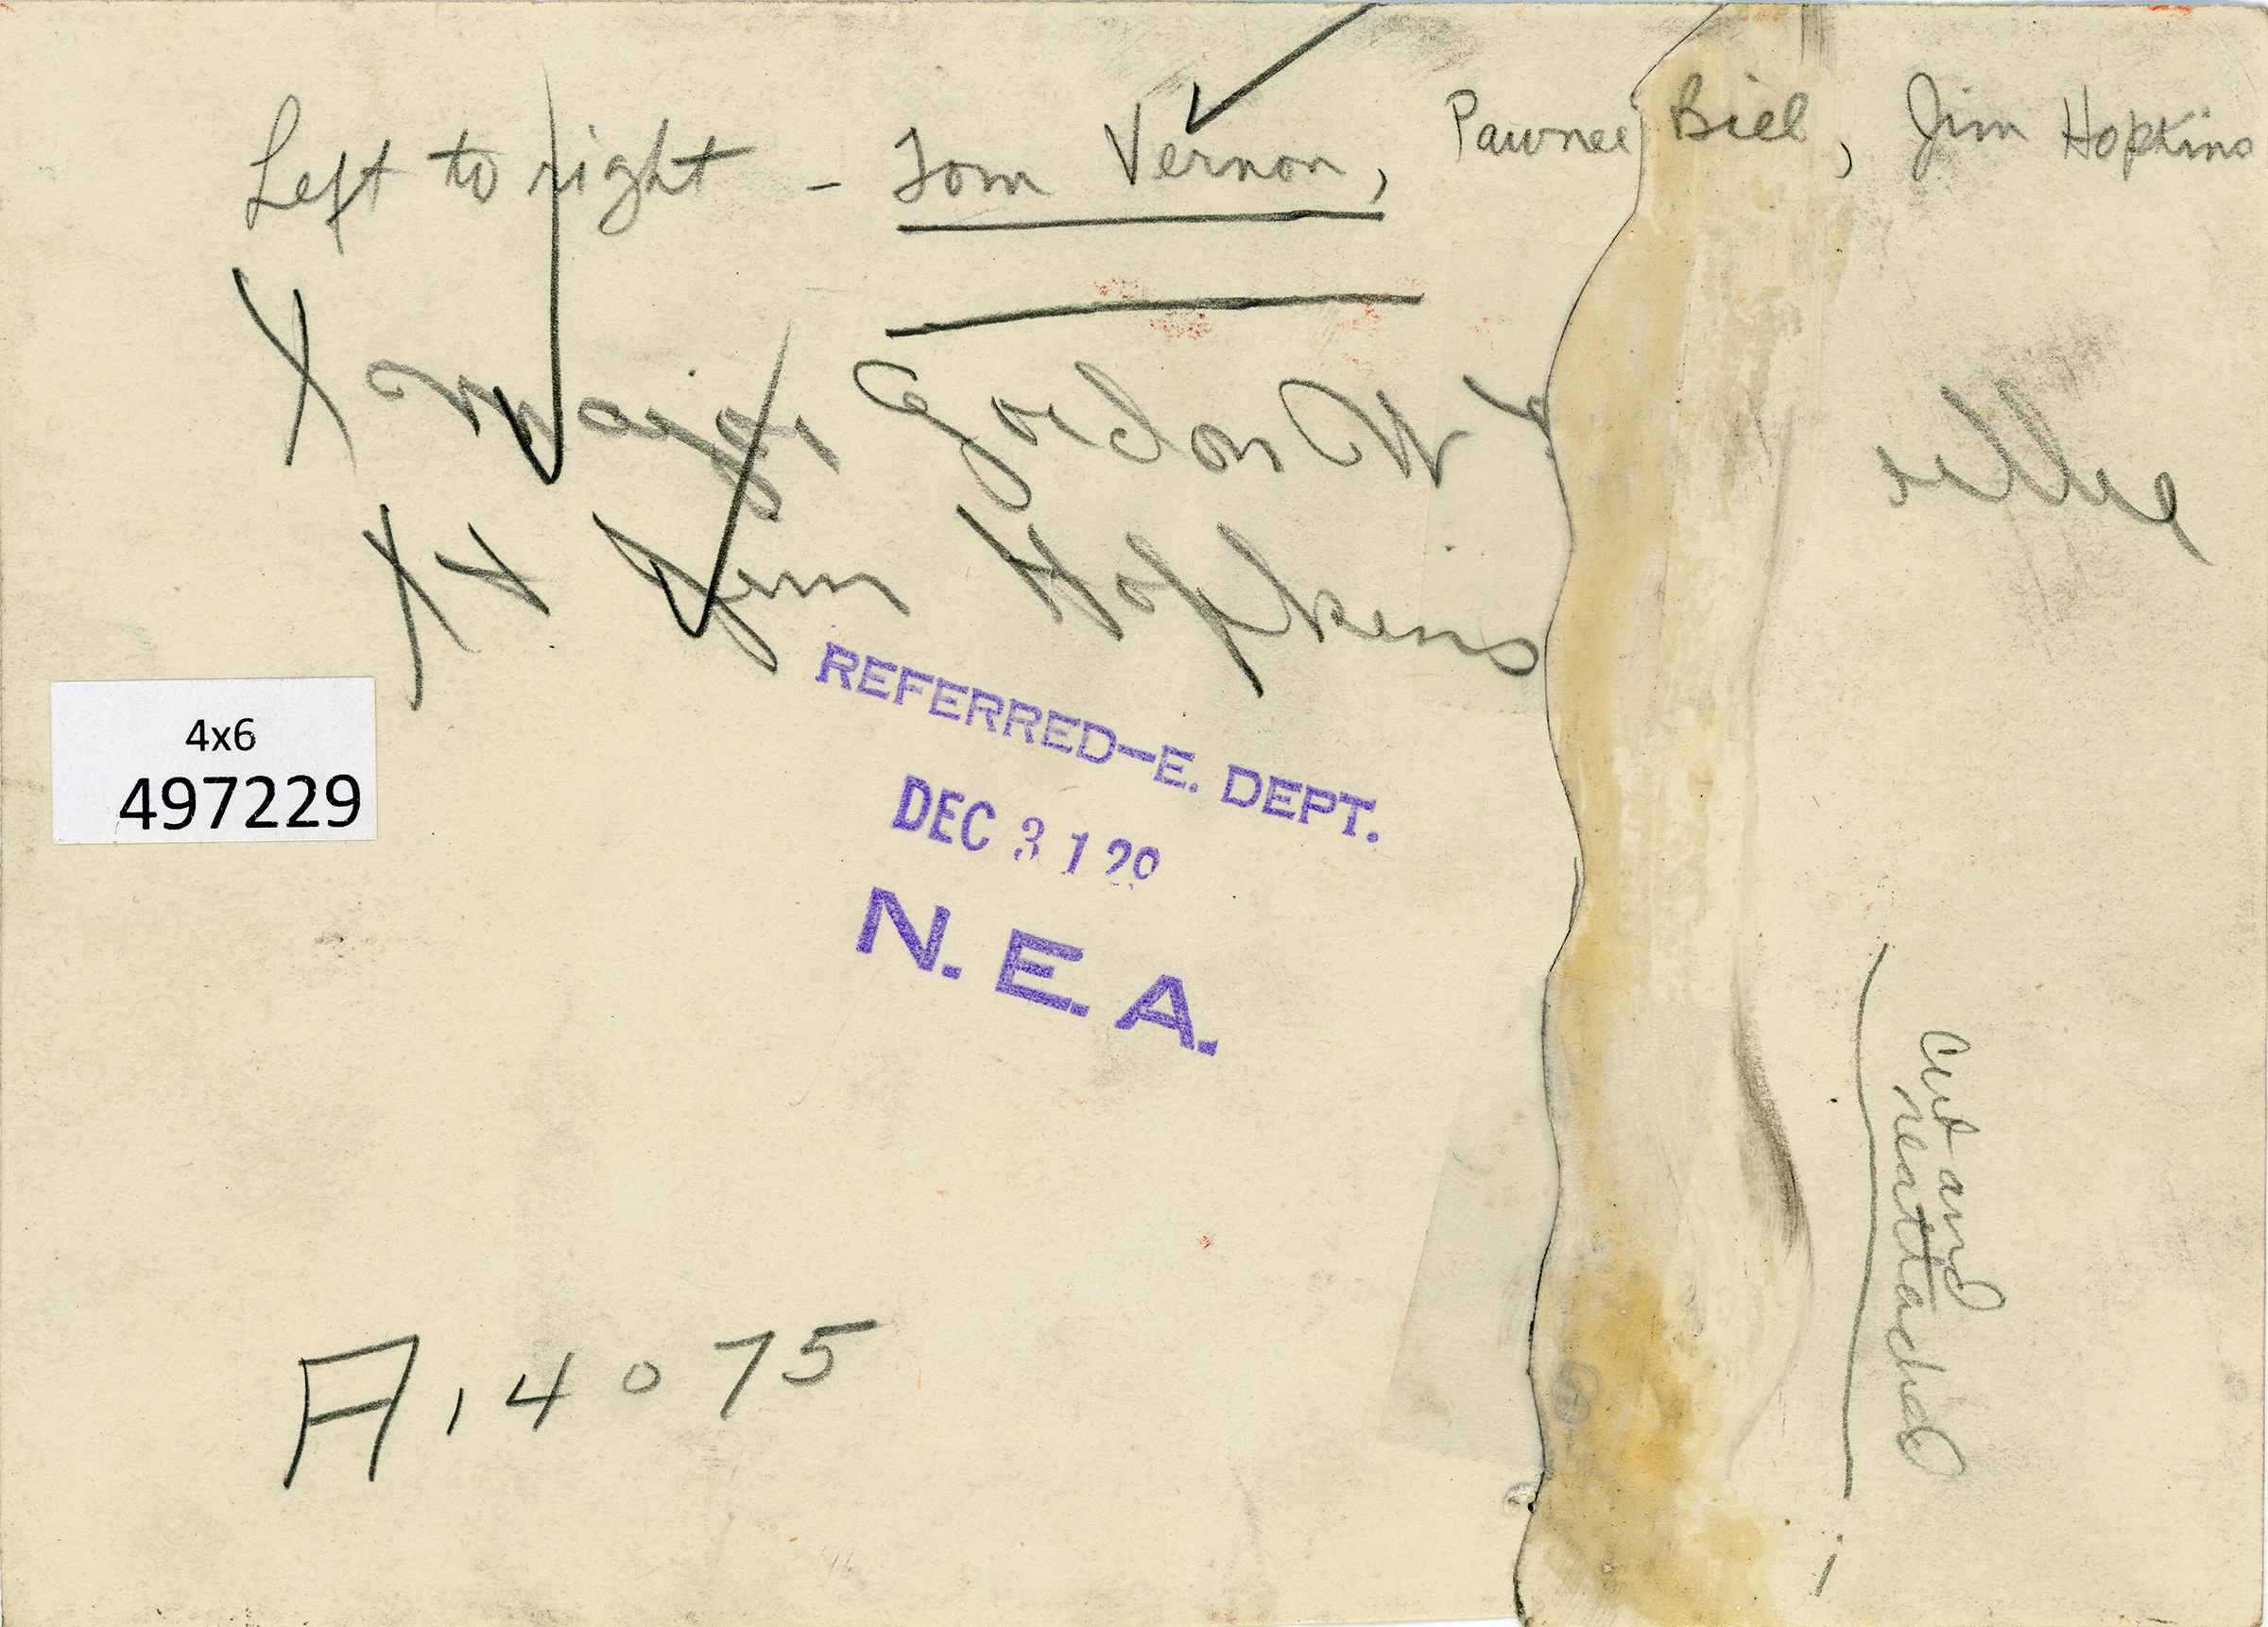 Left to right - Tom Vernon, Pawnee Bill, Jim Hopkins
X Major Gordon W
XX Jim Hopkins
REFERRED—E. DEPT.
DEC 31 29
N. E. A.
4x6
497229
Cut and
reattached
A, 4075